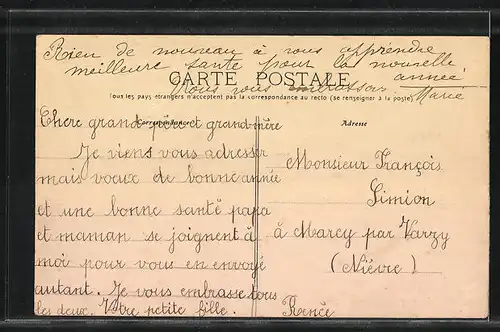 Rien de nouveau à vous apprendre
meilleure santé pour la nouvelle
année
CARTE POSTALE
Nous vous embrassons. Marie
Tous les pays étrangers n'acceptent pas la correspondance au recto (se renseigner à la poste)
Correspondance
Adresse
Chere grand-père et grand-mère
Je viens vous adresser
mais voeux de bonne année
et une bonne santé papa
et maman se joignent à
moi pour vous en envoyé
autant. Je vous embrasse tous
les deux. Votre petite fille. Renée
Monsieur François
Simion
à Marcy par Varzy
(Nièvre)